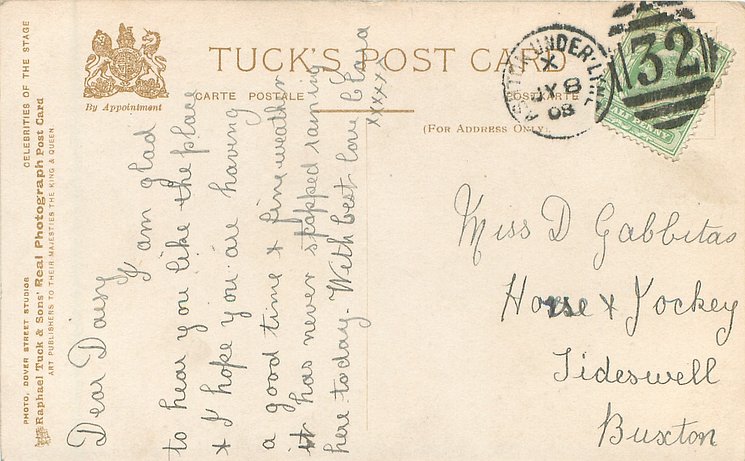 CELEBRITIES OF THE STAGE
PHOTO, DOVER STREET STUDIOS
Raphael Tuck & Sons' Real Photograph Post Card
ART PUBLISHERS TO THEIR MAJESTIES THE KING & QUEEN.
By Appointment
TUCK'S POST CARD
CARTE POSTALE
POSTKARTE
(FOR ADDRESS ONLY).
UNDER-LYNE
X
JY 8
08
32
HALFPENNY
Dear Daisy
I am glad
to hear you like the place
+ I hope you are having
a good time + fine weather
it has never stopped raining
here today. With best love Clara
xxxxx
Miss D Gabbitas
Horse + Jockey
Tideswell
Buxton